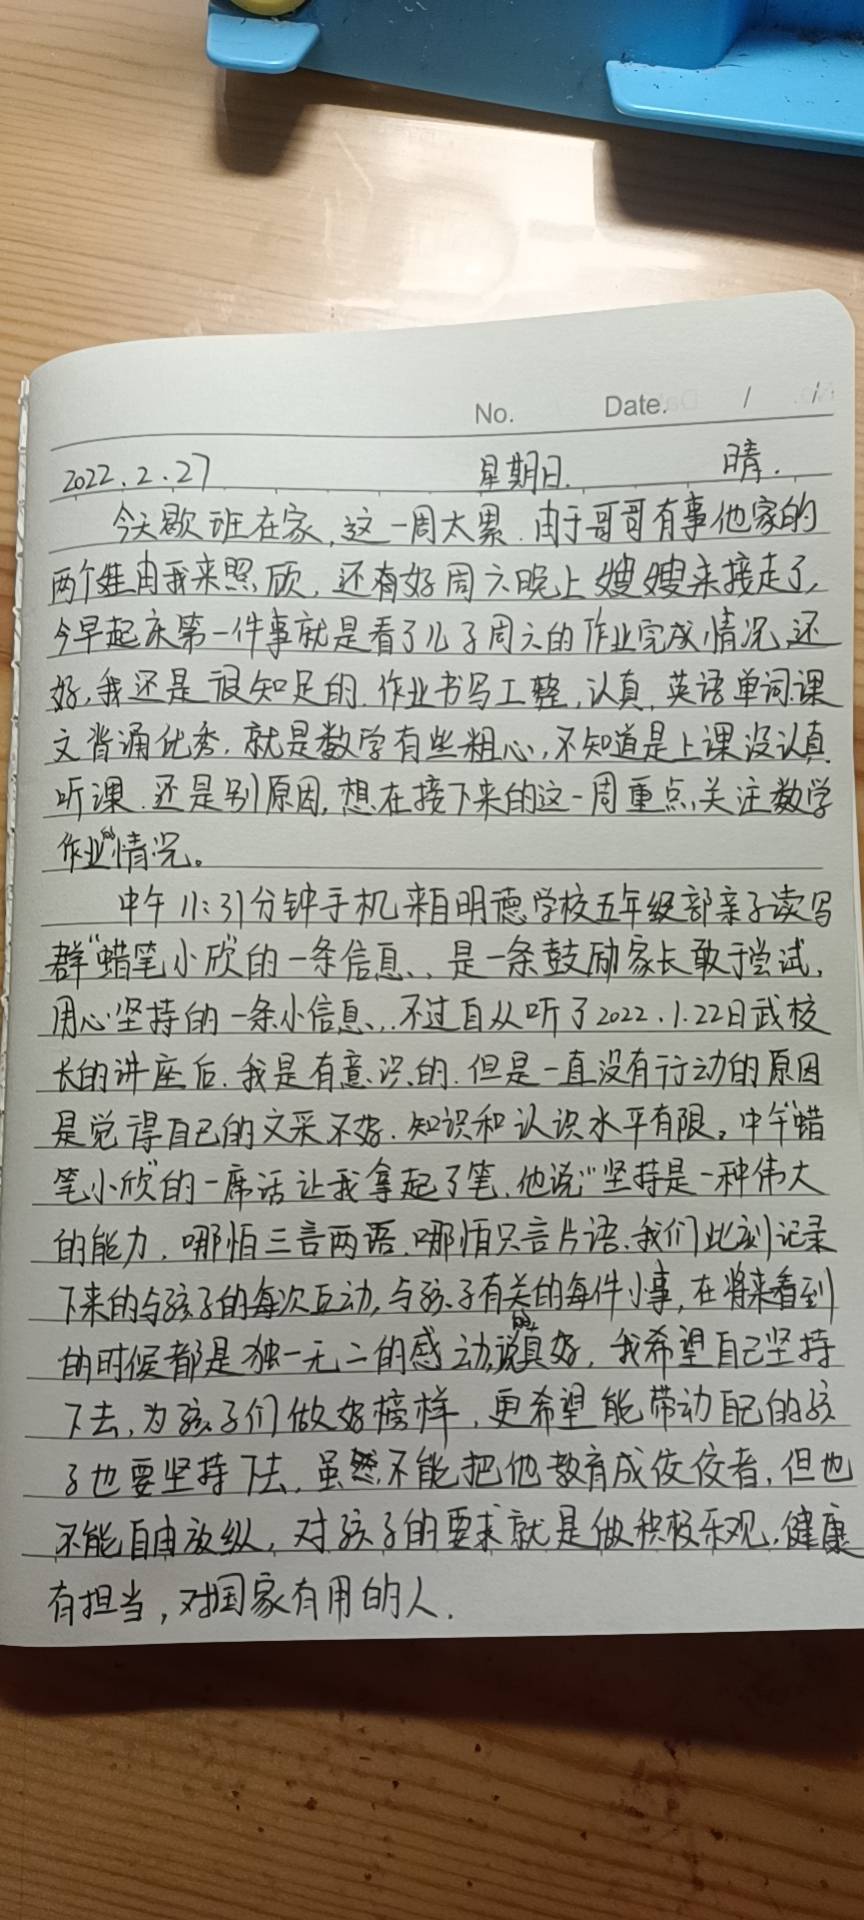 No. Date. / /
2022.2.27 星期日. 晴.
今天歇班在家,这一周太累.由于哥哥有事他家的
两个娃由我来照顾,还有好周六晚上嫂嫂来接走了,
今早起床第一件事就是看了儿子周六的作业完成情况,还
好,我还是很知足的.作业书写工整,认真,英语单词课
文背诵优秀.就是数学有些粗心,不知道是上课没认真
听课.还是别原因,想在接下来的这一周重点关注数学
作业的情况。
中午11:31分钟手机来自明德学校五年级部亲子读写
群“蜡笔小欣”的一条信息,是一条鼓励家长敢于尝试,
用心坚持的一条小信息,不过自从听了2022.1.22日武校
长的讲座后.我是有意识的.但是一直没有行动的原因
是觉得自己的文采不好.知识和认识水平有限。中午“蜡
笔小欣”的一席话让我拿起了笔,他说“坚持是一种伟大
的能力,哪怕三言两语,哪怕只言片语,我们此刻记录
下来的与孩子的每次互动,与孩子有关的每件小事,在将来看到
的时候都是独一无二的感动,说的真好,我希望自己坚持
下去,为孩子们做好榜样,更希望能带动自己的孩
子也要坚持下去,虽然不能把他教育成佼佼者,但也
不能自由放纵,对孩子的要求就是做积极乐观,健康
有担当,对国家有用的人.